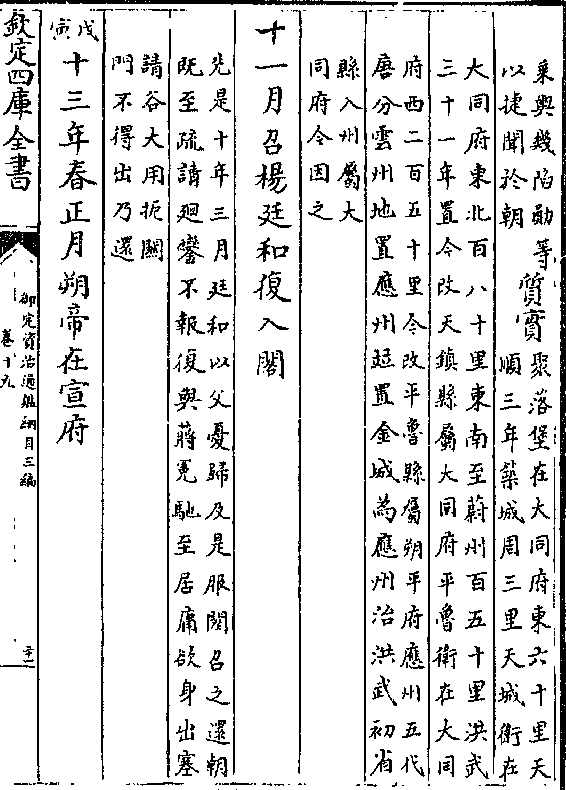 乘輿幾陷勛等
以捷聞於朝
質實
聚落堡在大同府東六十里天
順三年築城周三里天城衛在
大同府東北百八十里東南至蔚州百五十里洪武
三十一年置今改天鎮縣屬大同府平魯衛在大同
府西二百五十里今改平魯縣屬朔平府應州五代
唐分雲州地置應州治置金城為應州治洪武初省
縣入州屬大
同府今因之
十一月召楊廷和復入閣
先是十年三月廷和以父憂歸及是服闋召之還朝
既至疏請廻鑾不報復與蔣冕馳至居庸欲身出塞
請谷大用扼關
門不得出乃還
戊寅
十三年春正月朔帝在宣府
欽定四庫全書
御定資治通鑑綱目三編
卷十九